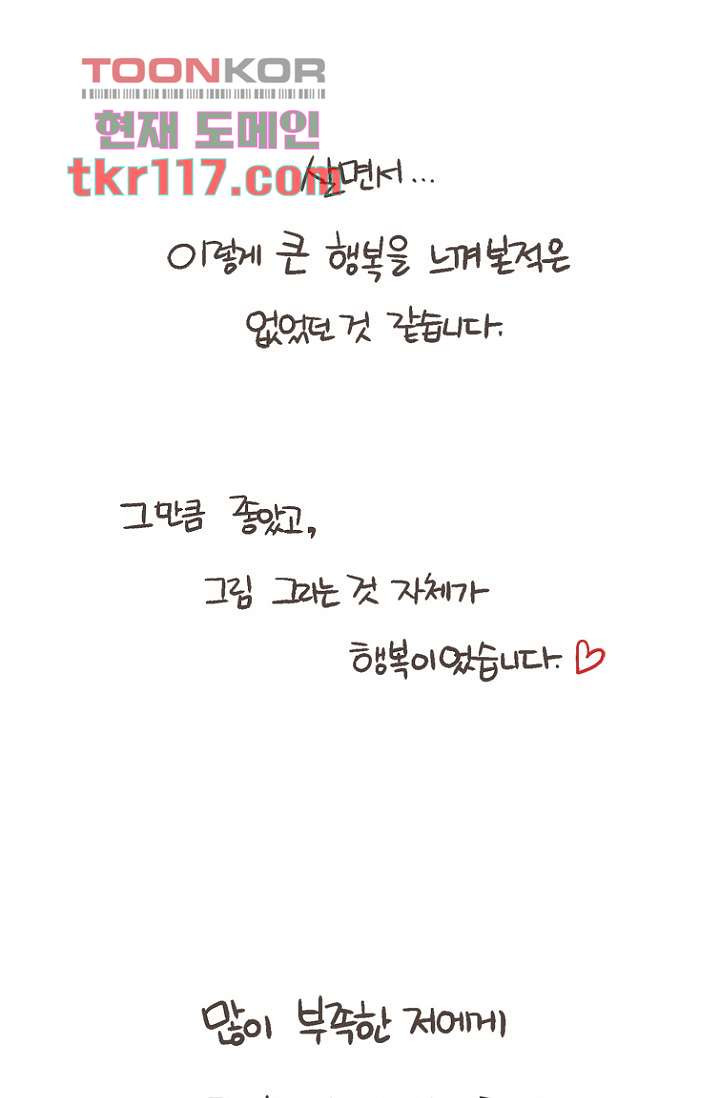 TOONKOR
현재 도메인
tkr117.com
살면서...
이렇게 큰 행복을 느껴본적은
없었던 것 같습니다.
그만큼 좋았고,
그림 그리는 것 자체가
행복이었습니다. ♡
많이 부족한 저에게